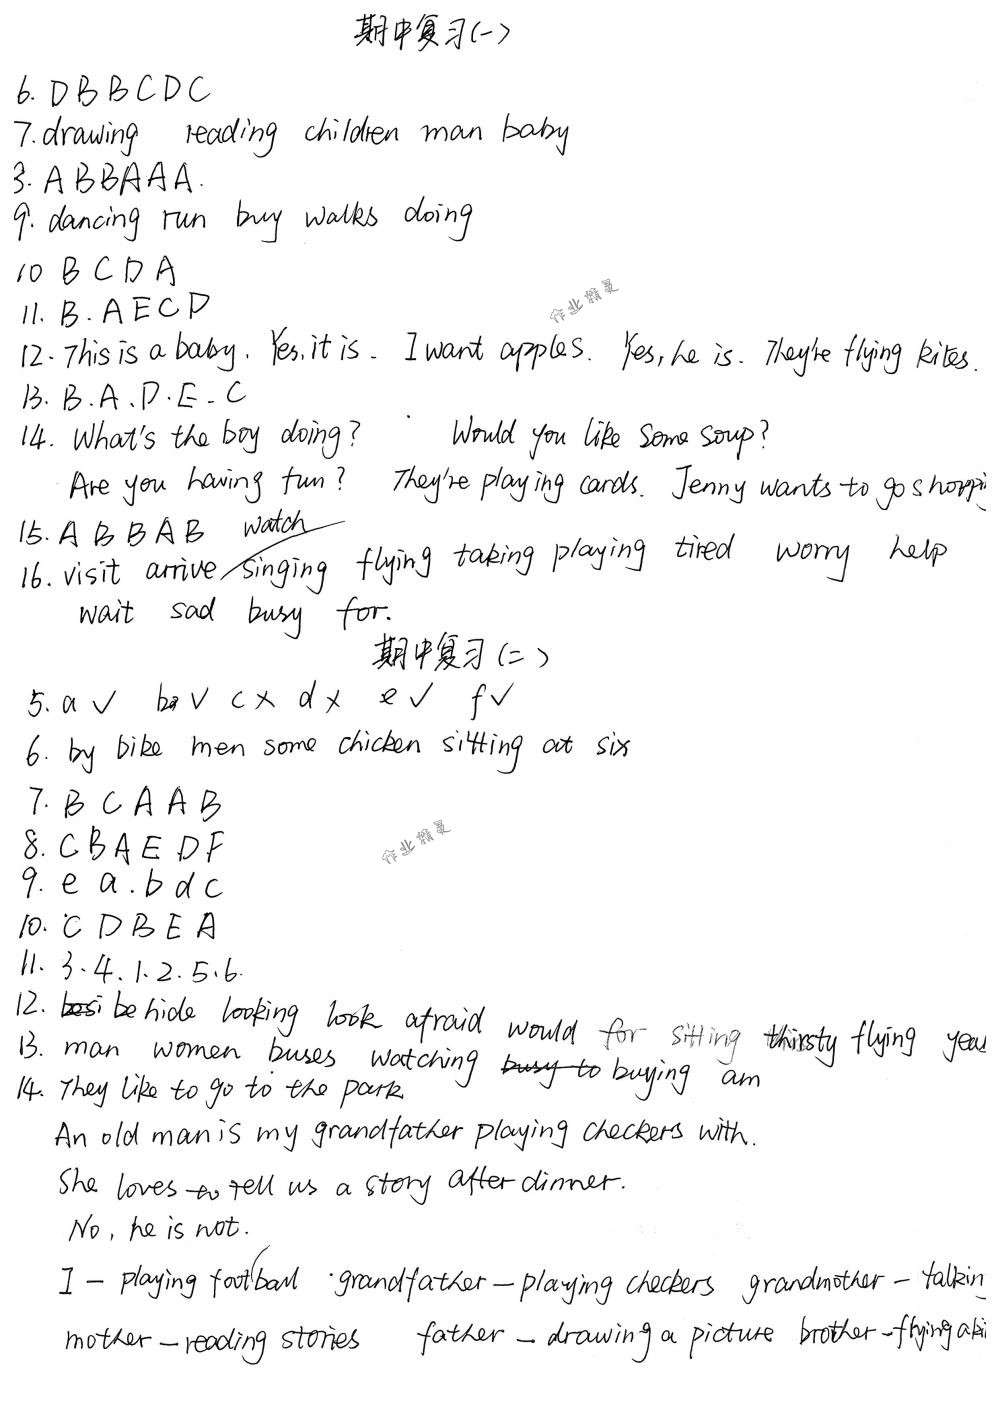 期中复习(一)
6. D B B C D C
7. drawing reading children man baby
3. A B B A A A.
9. dancing run buy walks doing
10 B C D A
11. B. A E C D
作业精灵
12. This is a baby. Yes, it is. I want apples. Yes, he is. They're flying kites.
13. B. A. D. E. C
14. What's the boy doing? Would you like some soup?
Are you having fun? They're playing cards. Jenny wants to go shoppi
15. A B B A B watch
16. visit arrive singing flying taking playing tired worry help
wait sad busy for.
期中复习(二)
5. a ✓ b ✓ c × d × e ✓ f ✓
6. by bike men some chicken sitting at six
7. B C A A B
作业精灵
8. C B A E D F
9. e a. b d c
10. C D B E A
11. 3. 4. 1. 2. 5. 6.
12. besi behide looking look afraid would for sitting thirsty flying yea
13. man women buses watching busy to buying am
14. They like to go to the park
An old man is my grandfather playing checkers with.
She loves to tell us a story after dinner.
No, he is not.
I - playing football · grandfather - playing checkers grandmother - talkin
mother - reading stories father - drawing a picture brother - flying a ki